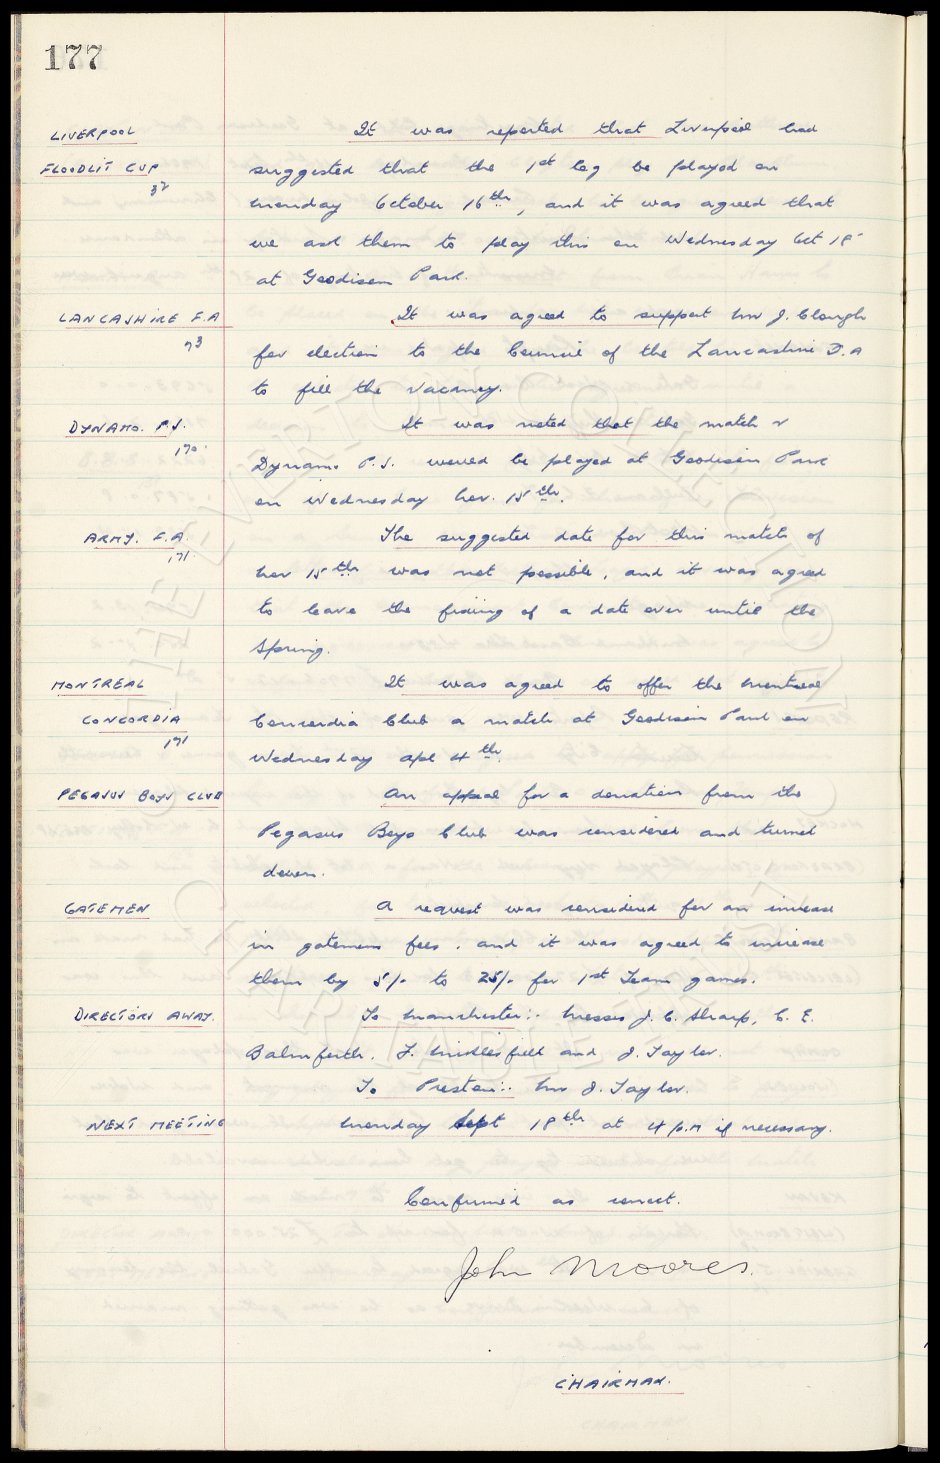 177
LIVERPOOL It was reported that Liverpool had
FLOODLIT CUP suggested that the 1st leg be played on
32 Monday October 16th, and it was agreed that
we ask them to play this on Wednesday Oct 18
at Goodison Park.
LANCASHIRE F.A It was agreed to support Mr J. Clough
73 for election to the Council of the Lancashire F.A
to fill the vacancy.
DYNAMO. P.S. It was noted that the match v
170 Dynamo P.S. would be played at Goodison Park
on Wednesday Nov. 15th.
ARMY. F.A. The suggested date for this match of
171 Nov 15th was not possible, and it was agreed
to leave the fixing of a date over until the
Spring.
MONTREAL It was agreed to offer the Montreal
CONCORDIA Concordia Club a match at Goodison Park on
171 Wednesday Apl 4th.
PEGASUS BOYS CLUB An appeal for a donation from the
Pegasus Boys Club was considered and turned
down.
GATEMEN A request was considered for an increase
in gatemens fees, and it was agreed to increase
them by 5/- to 25/- for 1st Team games.
DIRECTORS AWAY. To Manchester:- Messrs J. C. Sharp, C. E.
Balmforth, F. Micklesfield and J. Taylor.
To Preston:- Mr J. Taylor.
NEXT MEETING Monday Sept 18th at 4 p.m if necessary.
Confirmed as correct.
John Moores.
CHAIRMAN.